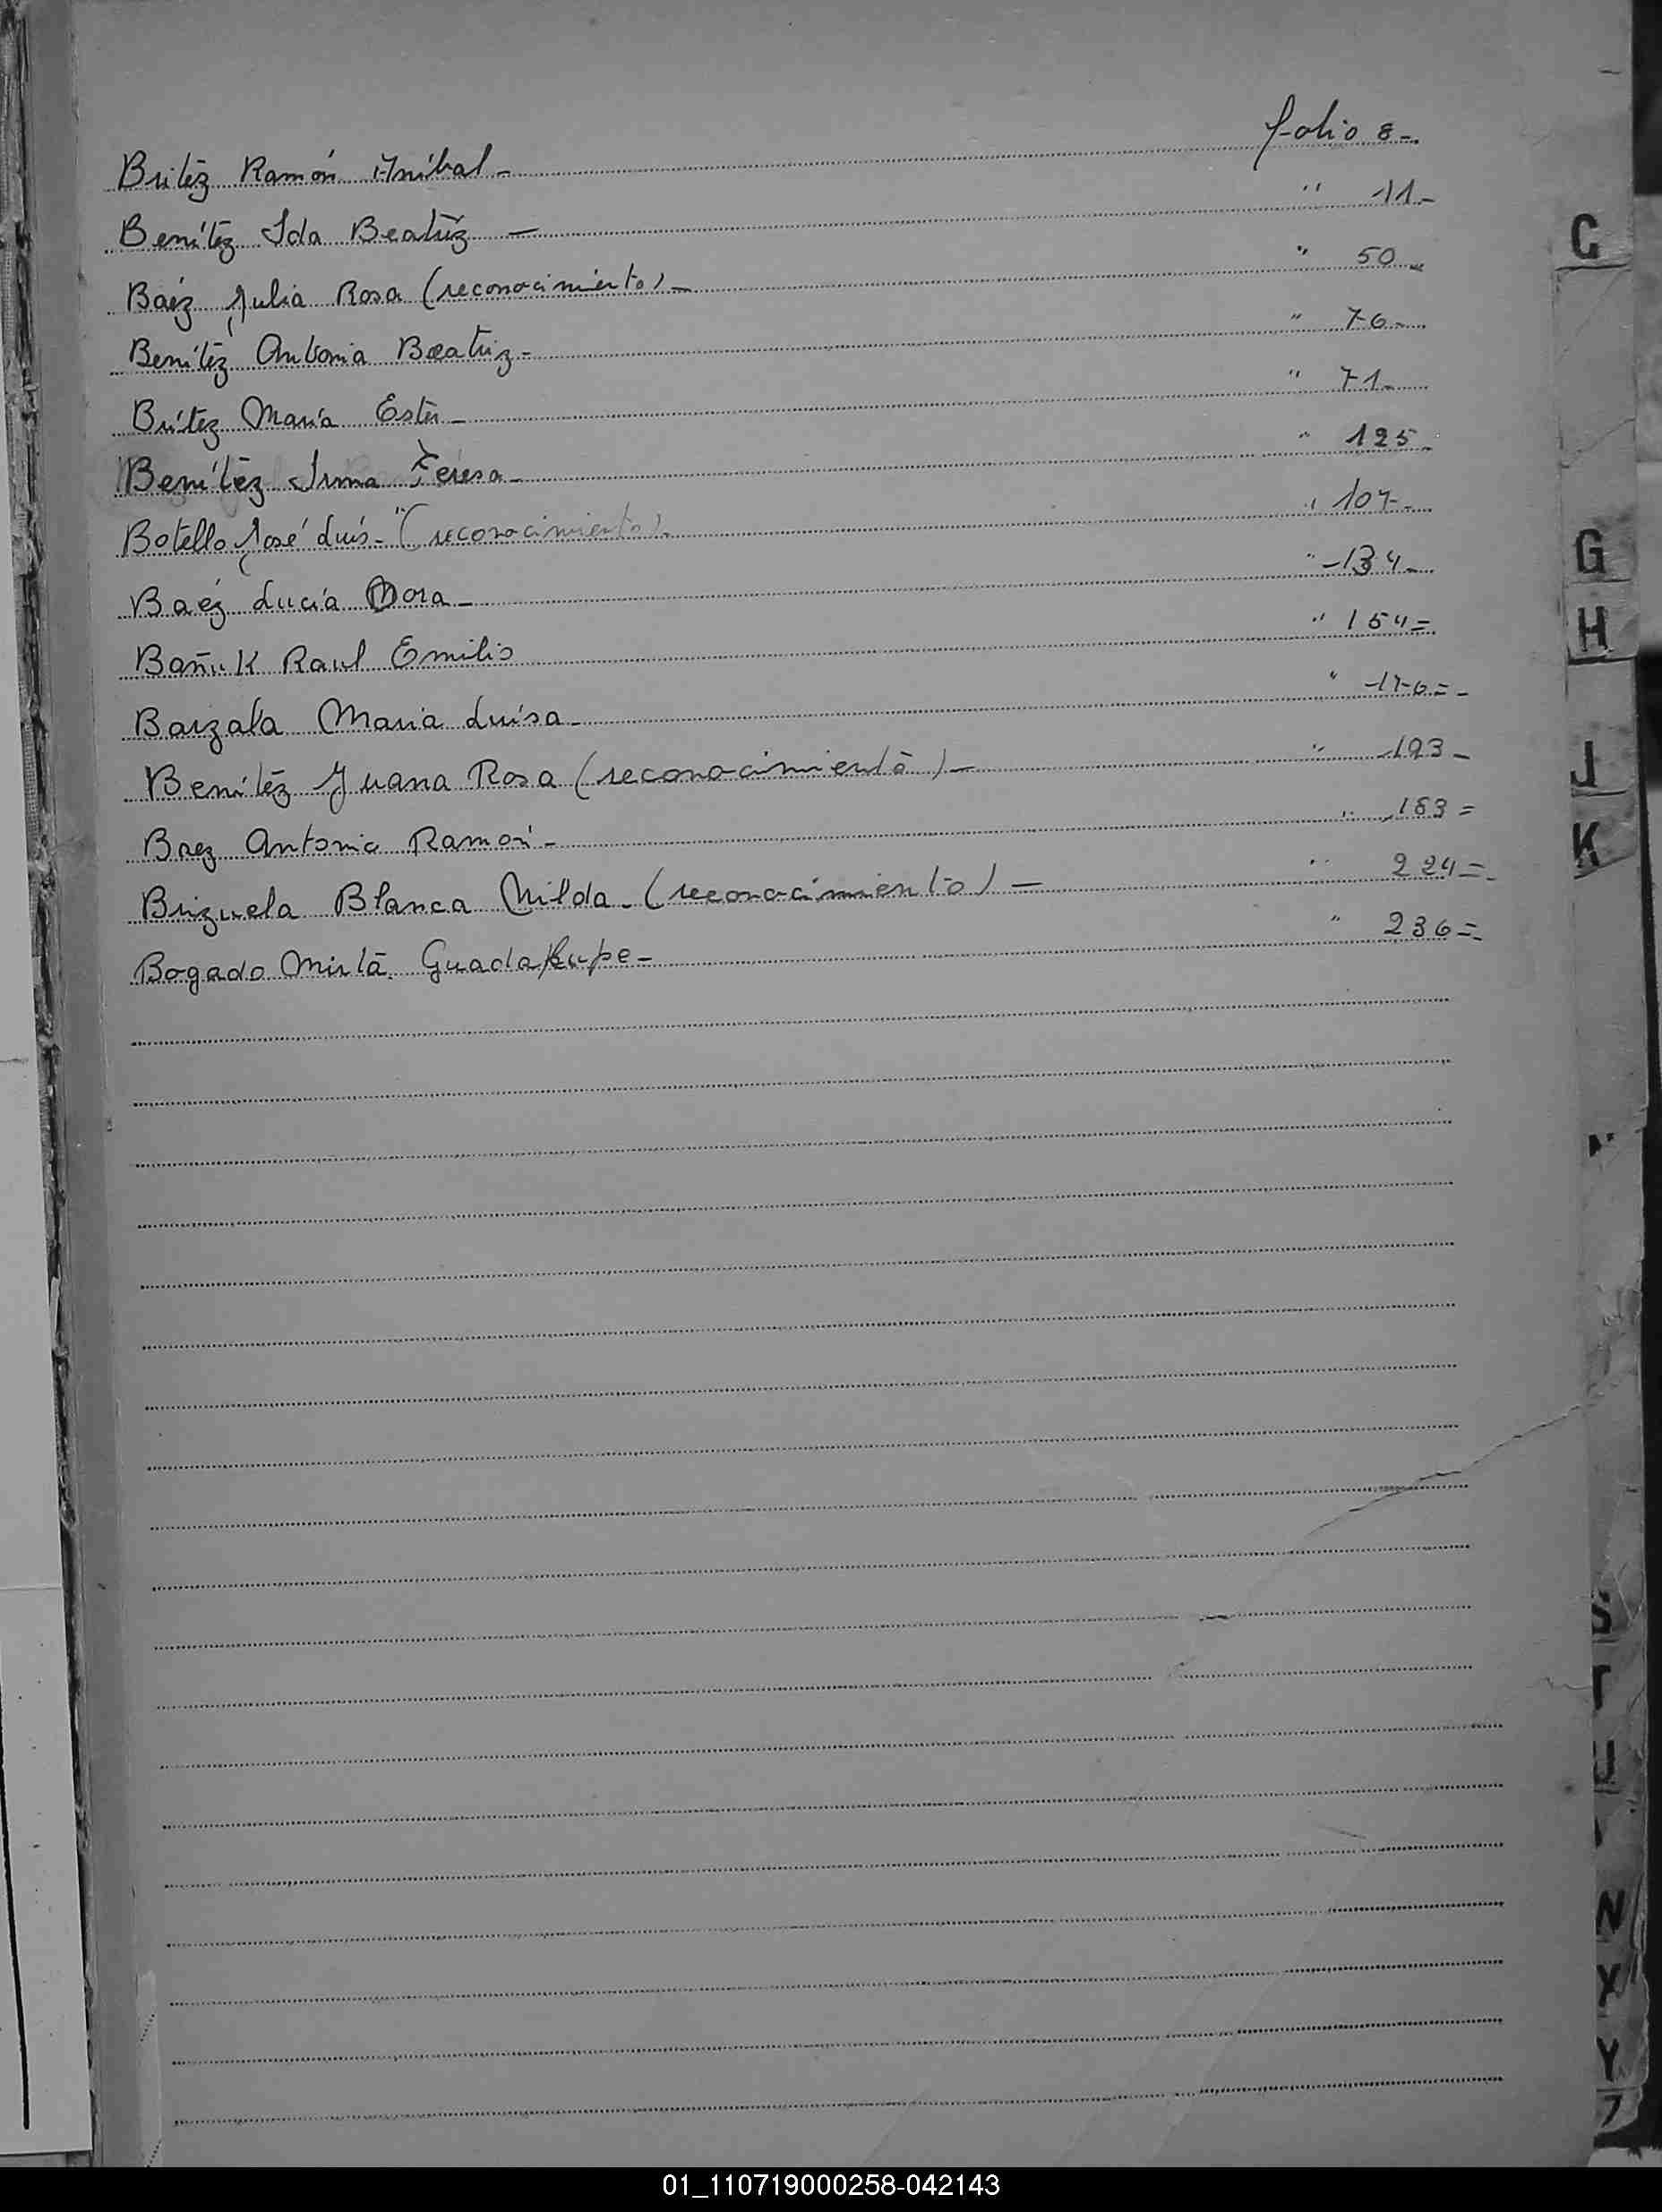 Britéz Ramón Aníbal - folio 8 -
Benítez Ida Beatríz - " 11 -
Baéz Julia Rosa (reconocimiento) - " 50 -
Benítez Antonia Beatriz - " 76 -
Brítez María Ester - " 71 -
Benítez Irma Teresa - " 125 -
Botello José Luís - "(reconocimiento). " 107 -
Baéz Lucía Mora - " 134 -
Bañuk Raul Emilio " 154 =
Barzala Maria Luísa - " 176 = -
Benítez Juana Rosa (reconocimiento) - " 193 -
Baez Antonio Ramón - " 163 =
Brizuela Blanca Nilda - (reconocimiento) - " 224 = -
Bogado Mirta Guadalupe - " 236 = -
C
G
H
J
K
N
S
T
U
N
X
Y
Z
01_110719000258-042143